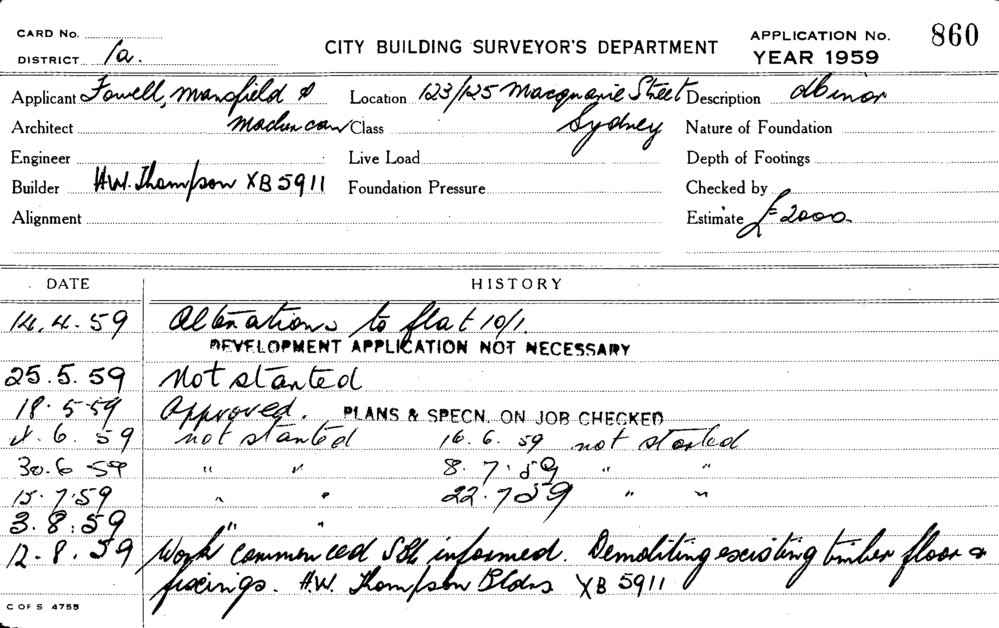 CARD No. CITY BUILDING SURVEYOR'S DEPARTMENT APPLICATION No. 860
DISTRICT 1a. YEAR 1959
Applicant Fowell, Mansfield & Location 123/125 Macquarie Street Description
Architect Maclurcan Class Sydney Nature of Foundation
Engineer Live Load Depth of Footings
Builder H.W. Thompson XB 5911 Foundation Pressure Checked by
Alignment Estimate £2000
DATE HISTORY
14.4.59 Alterations to flat 10/1.
DEVELOPMENT APPLICATION NOT NECESSARY
25.5.59 Not started
18.5.59 Approved. PLANS & SPECN. ON JOB CHECKED
.6.59 not started 16.6.59 not started
30.6.59 " " 8.7.59 " "
15.7.59 " " 22.7.59 " "
3.8.59 " "
12.8.59 Work commenced informed. Demoliting existing timber floor &
fixings. H.W. Thompson Bldrs XB 5911
C OF S 4755